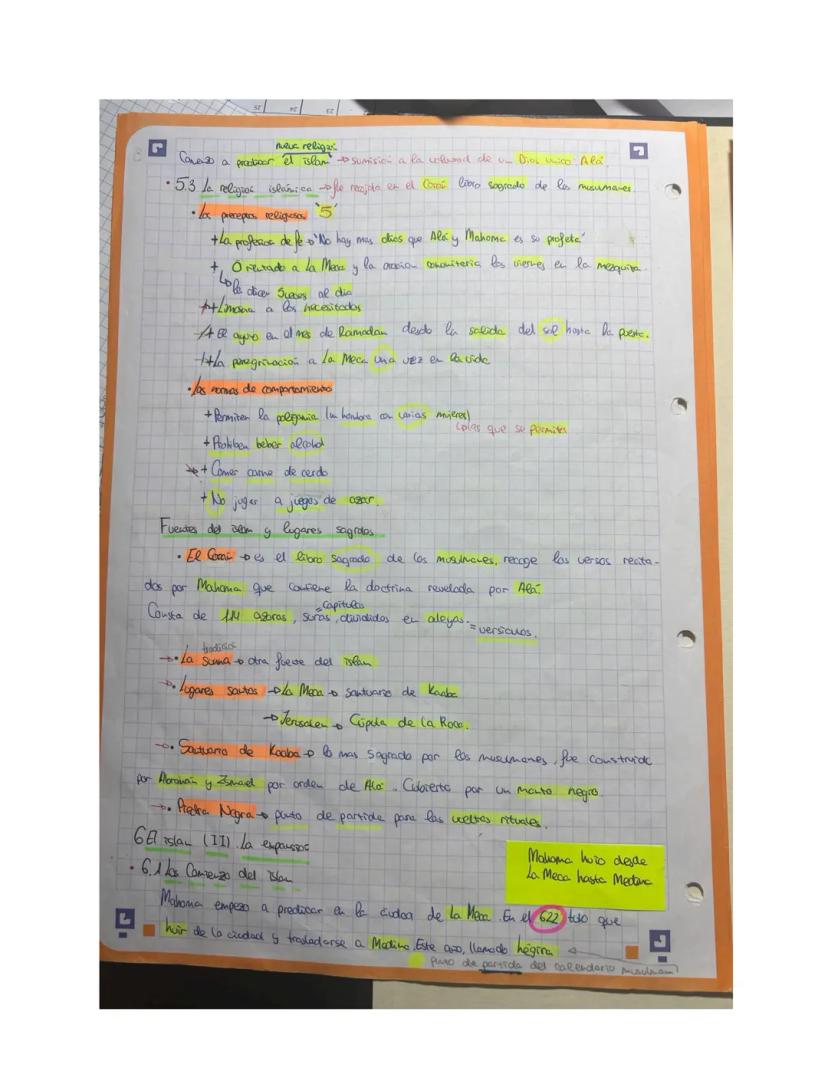 nueva religión
Comenzo a predicar el islam → sumisión a la voluntad de un Dios único Alá.
• 5.3 La religión islámica → fue recojida en el Corán libro sagrado de los musulmanes.
• Los preceptos religiosos "5"
+ La profesión de fe → "No hay mas dios que Alá y Mahoma es su profeta"
+ Orientado a La Meca y la oración comunitaria los viernes en la mezquita.
↳ le dicen 5 veces al día
+ Limosna a los necesitados
+ El ayuno en el mes de Ramadan desde la salida del sol hasta la puesta.
+ La peregrinación a La Meca una vez en la vida
• Las normas de comportamiento
+ Permiten la poligamia (un hombre con varias mujeres)
(olas que se permita
+ Prohiben beber alcohol
+ Comer carne de cerdo
+ No jugar a juegos de azar.
Fuentes del islam y lugares sagrados
• El Corán → es el libro sagrado de los musulmanes, recoge los versos recita-
dos por Mahoma que contiene la doctrina revelada por Alá
= capitulos
Consta de 114 azoras, suras, divididos en aleyas. = versiculos.
tradición
→ • La sunna → otra fuente del islam
→ • Lugares santos → La Meca → santuario de Kaaba
→ Jerusalen → Cúpula de La Roca.
→ • Santuario de Kaaba → lo mas sagrado por los musulmanes, fue construido
por Abraham y Ismael por orden de Alá. Cubierto por un manto negro.
→ • Piedra Negra → punto de partida para las vueltas rituales.
6 El islam (II). La expansión
• 6.1 Los Comienzo del islam
Mahoma huio desde
La Meca hasta Medina
Mahoma empezo a predicar en la ciudad de La Meca. En el 622 tubo que
huir de la ciudad y trasladarse a Medina. Este año, llamado hégira
punto de partida del calendario musulman